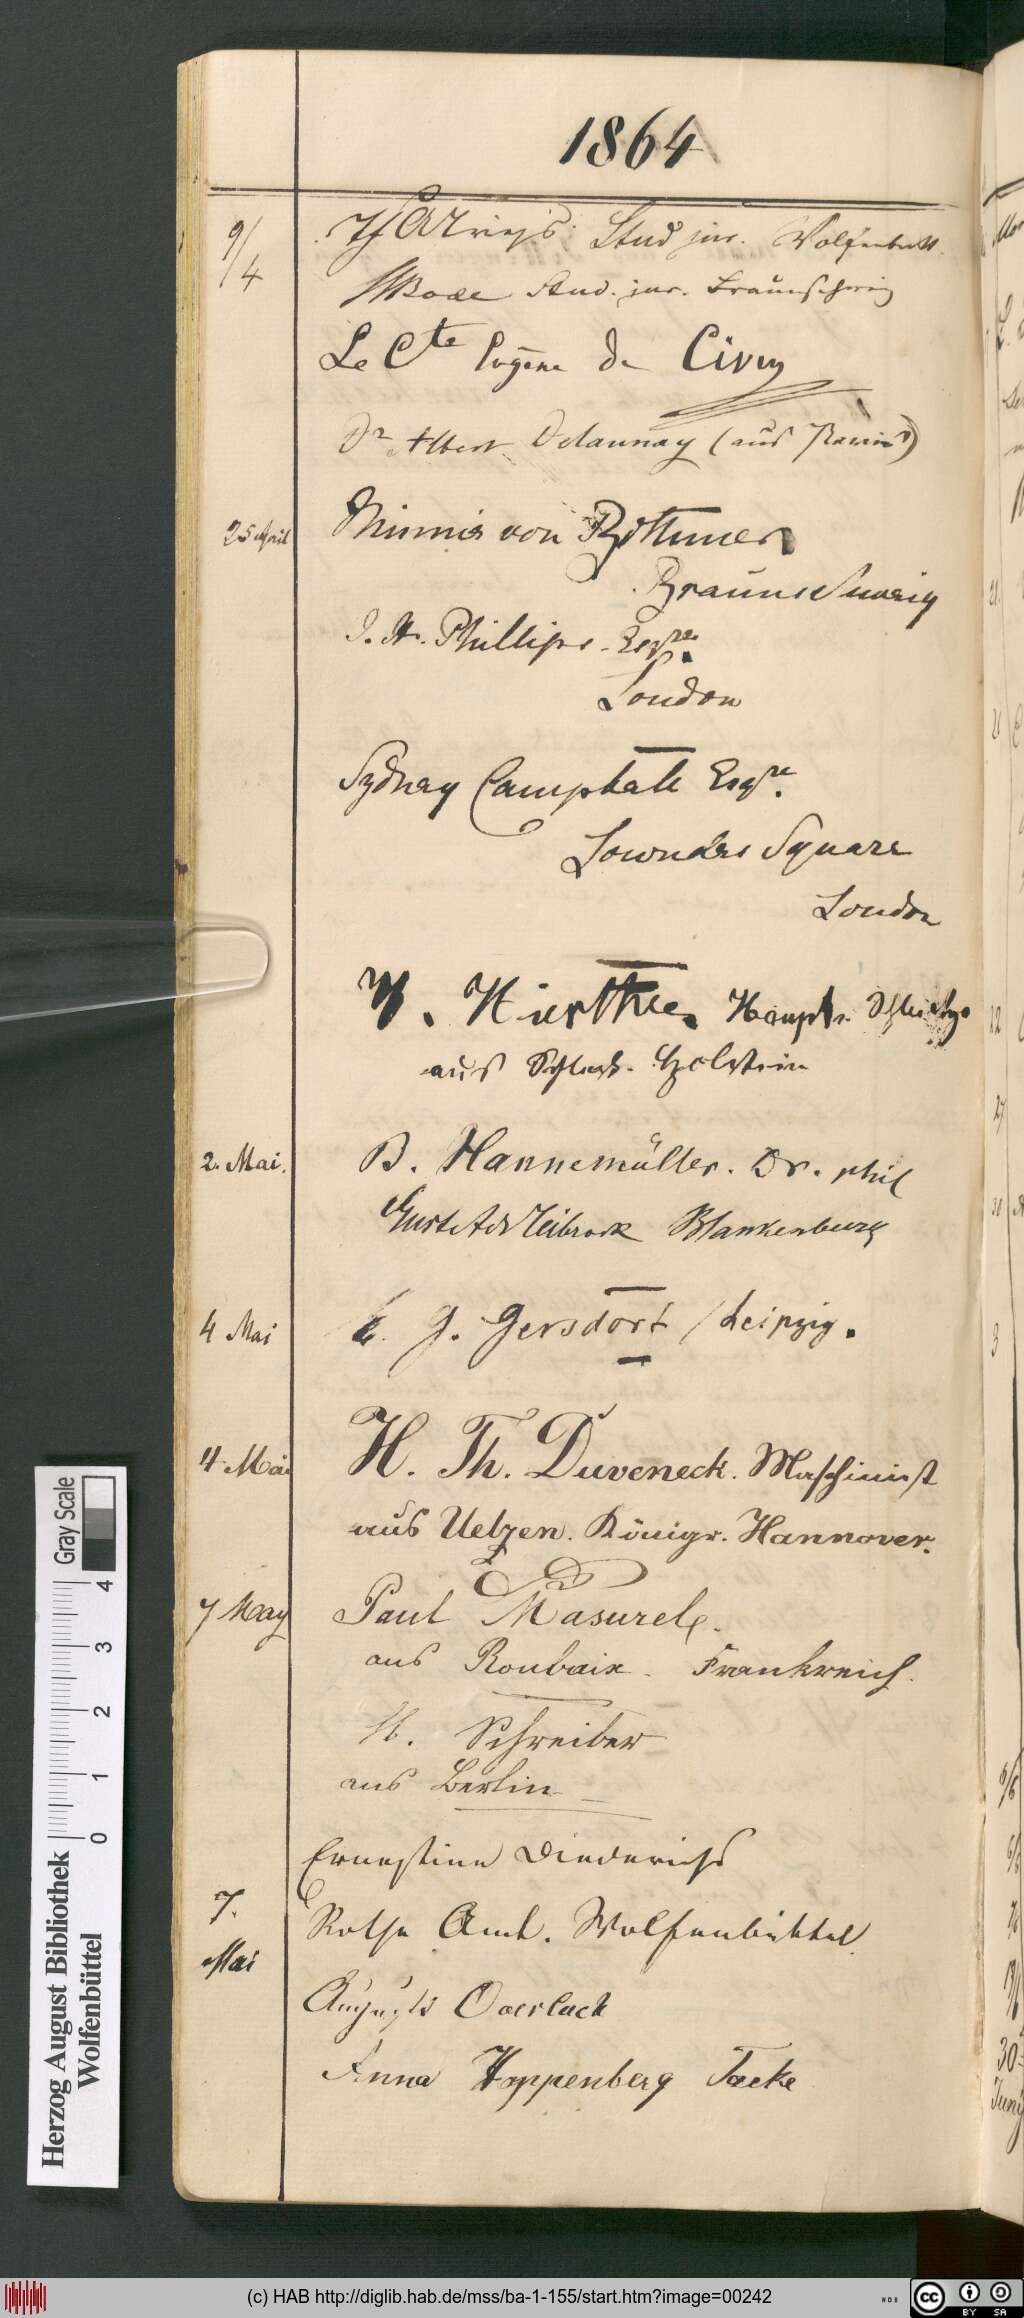 1864
9/4 Stud jur. Wolfenbütt.
Bode Stud. jur. Braunschweig
Le Cte Eugène de Civry
Dr Albert Delaunay (aus Rennes)
25 April Minnie von Bothmer
Braunschweig
J. H. Phillips Esqre.
London
Sydney Campbell Esqre.
Lowndes Square
London
Hauptm.
aus Schlesw. Holstein
2. Mai. B. Hannemüller. Dr. phil
Gustav Blankenburg
4 Mai E. G. Gersdorf / Leipzig.
4 Mai H. Th. Duveneck. Maschinist
aus Uelzen. Königr. Hannover.
7 May Paul Masurel.
aus Roubaix. Frankreich.
H. Schreiber
aus Berlin
Ernestine Diederichs
7. Mai Rothe Amt. Wolfenbüttel.
Auguste Overlach
Anna Hoppenberg Tacke
Gray Scale
0 1 2 3 4
Herzog August Bibliothek
Wolfenbüttel
(c) HAB http://diglib.hab.de/mss/ba-1-155/start.htm?image=00242
cc BY SA